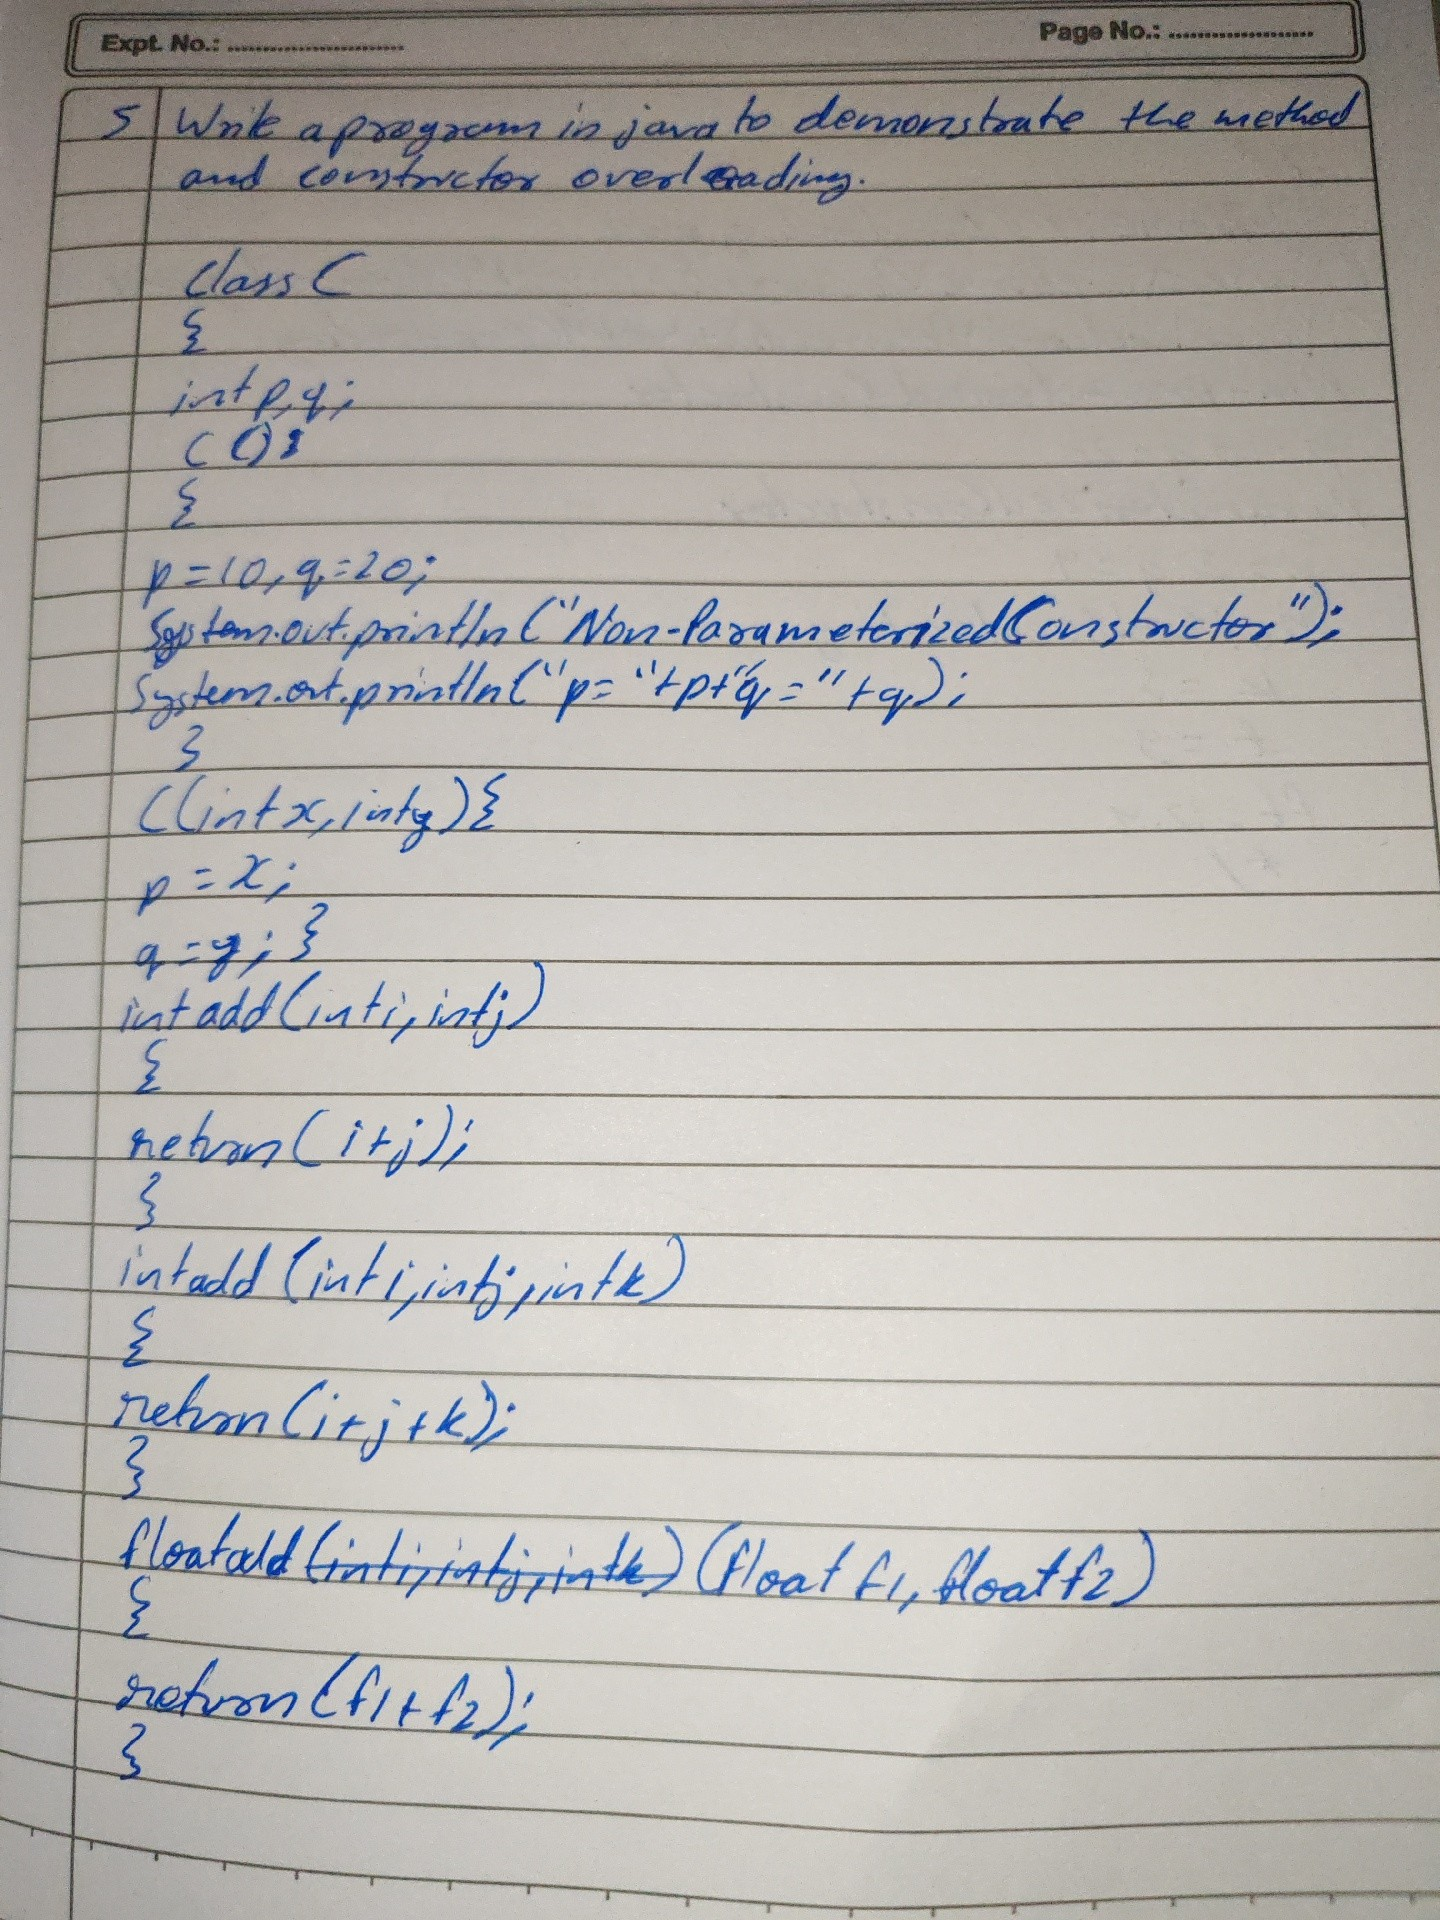 Expt. No.: ..........................
Page No.: ......................
5 Write a program in java to demonstrate the method
and constructor overloading.
Class C
{
int p, q;
C ()
{
p=10, q=20;
System.out.println ("Non-Parameterized Constructor");
System.out.println ("p= "+p+"q = " +q);
}
C(int x, int y) {
p = x;
q = y; }
int add (int i, int j)
{
return (i+j);
}
int add (int i, int j, int k)
{
return (i+j+k);
}
float add (int i, int j, int k) (float f1, float f2)
{
return (f1+f2);
}